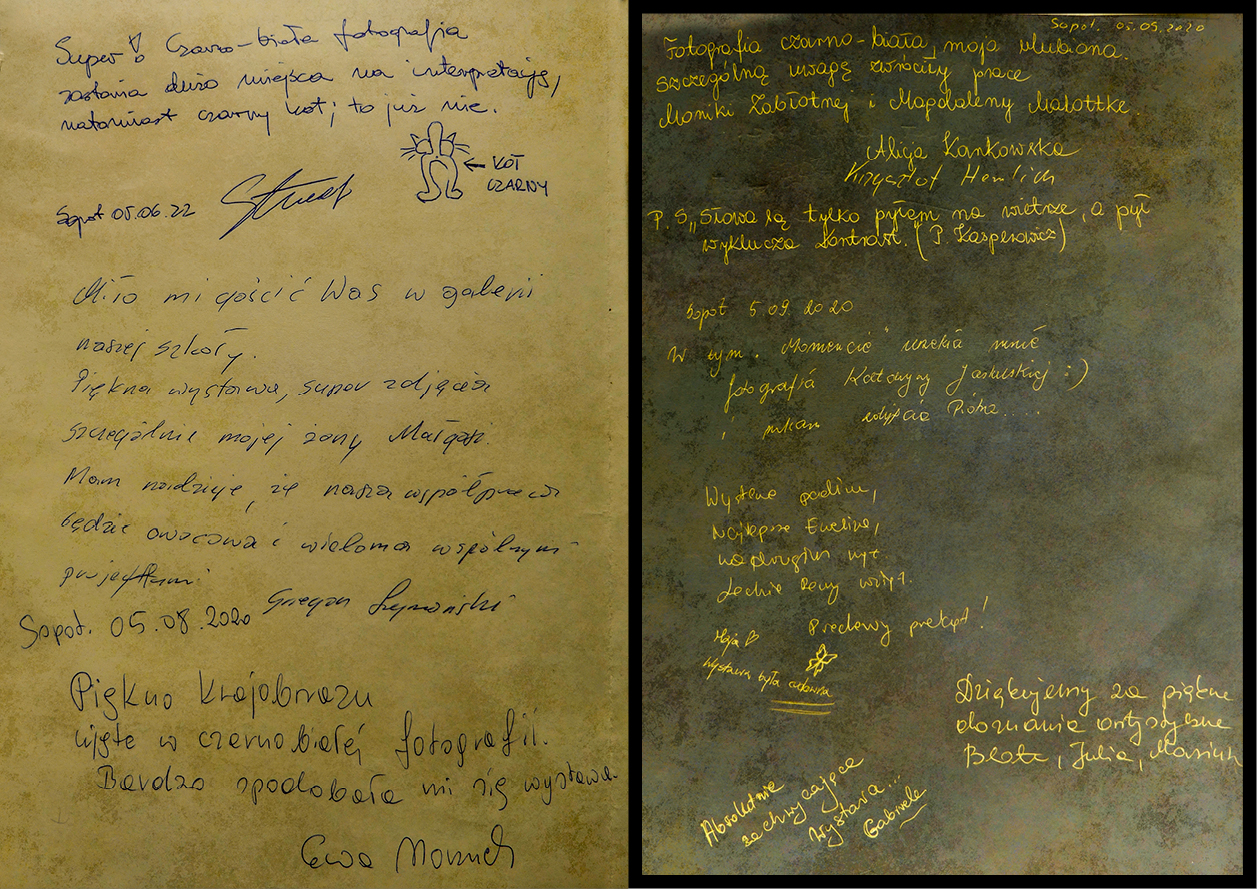 Super! Czarno-biała fotografia
zostawia dużo miejsca na interpretację,
natomiast czarny kot; to już nie.
KOT
CZARNY
Sopot 05.06.22
Miło mi gościć Was w galerii
naszej szkoły.
Piękna wystawa, super zdjęcia
szczególnie mojej żony Małgosi.
Mam nadzieję, że nasza współpraca
będzie owocowa i wieloma wspólnymi
projektami
Sopot. 05.08.2020
Piękno Krajobrazu
ujęte w czarnobiałej fotografii.
Bardzo spodobała mi się wystawa.
Ewa
Sopot. 05.09.2020
Fotografia czarno-biała, moja ulubiona.
Szczególną uwagę zwróciły prace
Moniki Zabłotnej i Magdaleny Malottke.
Alicja Kankowska
Krzysztof Hemlich
P. S. „Słowa są tylko pyłem na wietrze, a pył
wyklucza kontrast." (P. Kasperowicz)
Sopot 5 09. 2020
W tym. Momencie urzekła mnie
fotografia Katarzyny Jasulskiej :)
i zdjęcia Piotra.....
Najlepsza Ewelina,
Maja
Wystawa była cudowna
Dziękujemy za piękne
doznania artystyczne
Beata, Julia,
Absolutnie
zachwycająca
wystawa...
Gabriela